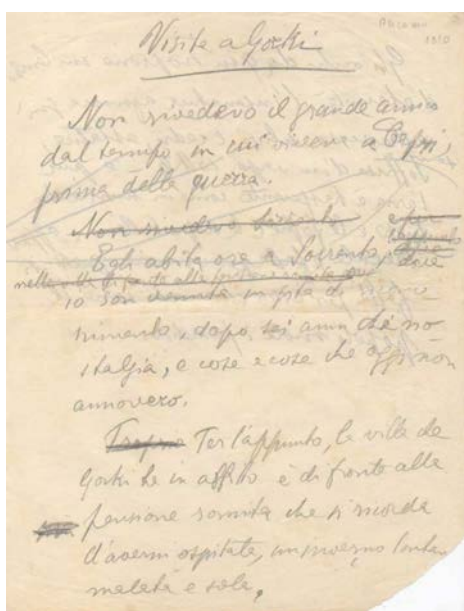 Visite a Gorki
Non rivedevo il grande amico
dal tempo in cui vivevo a Capri,
prima della guerra.
Non rivedevo Sorrento
Egli abita ora a Sorrento, dove
io son venuta in gita di
rimento, dopo sei anni che no
stalgia, e cose e cose che oggi non
annovero.
Per l'appunto, la villa che
Gorki ha in affitto è di fronte alla
pensione romita che si ricorda
d'avermi ospitata, un inverno lontano
malata e sola,